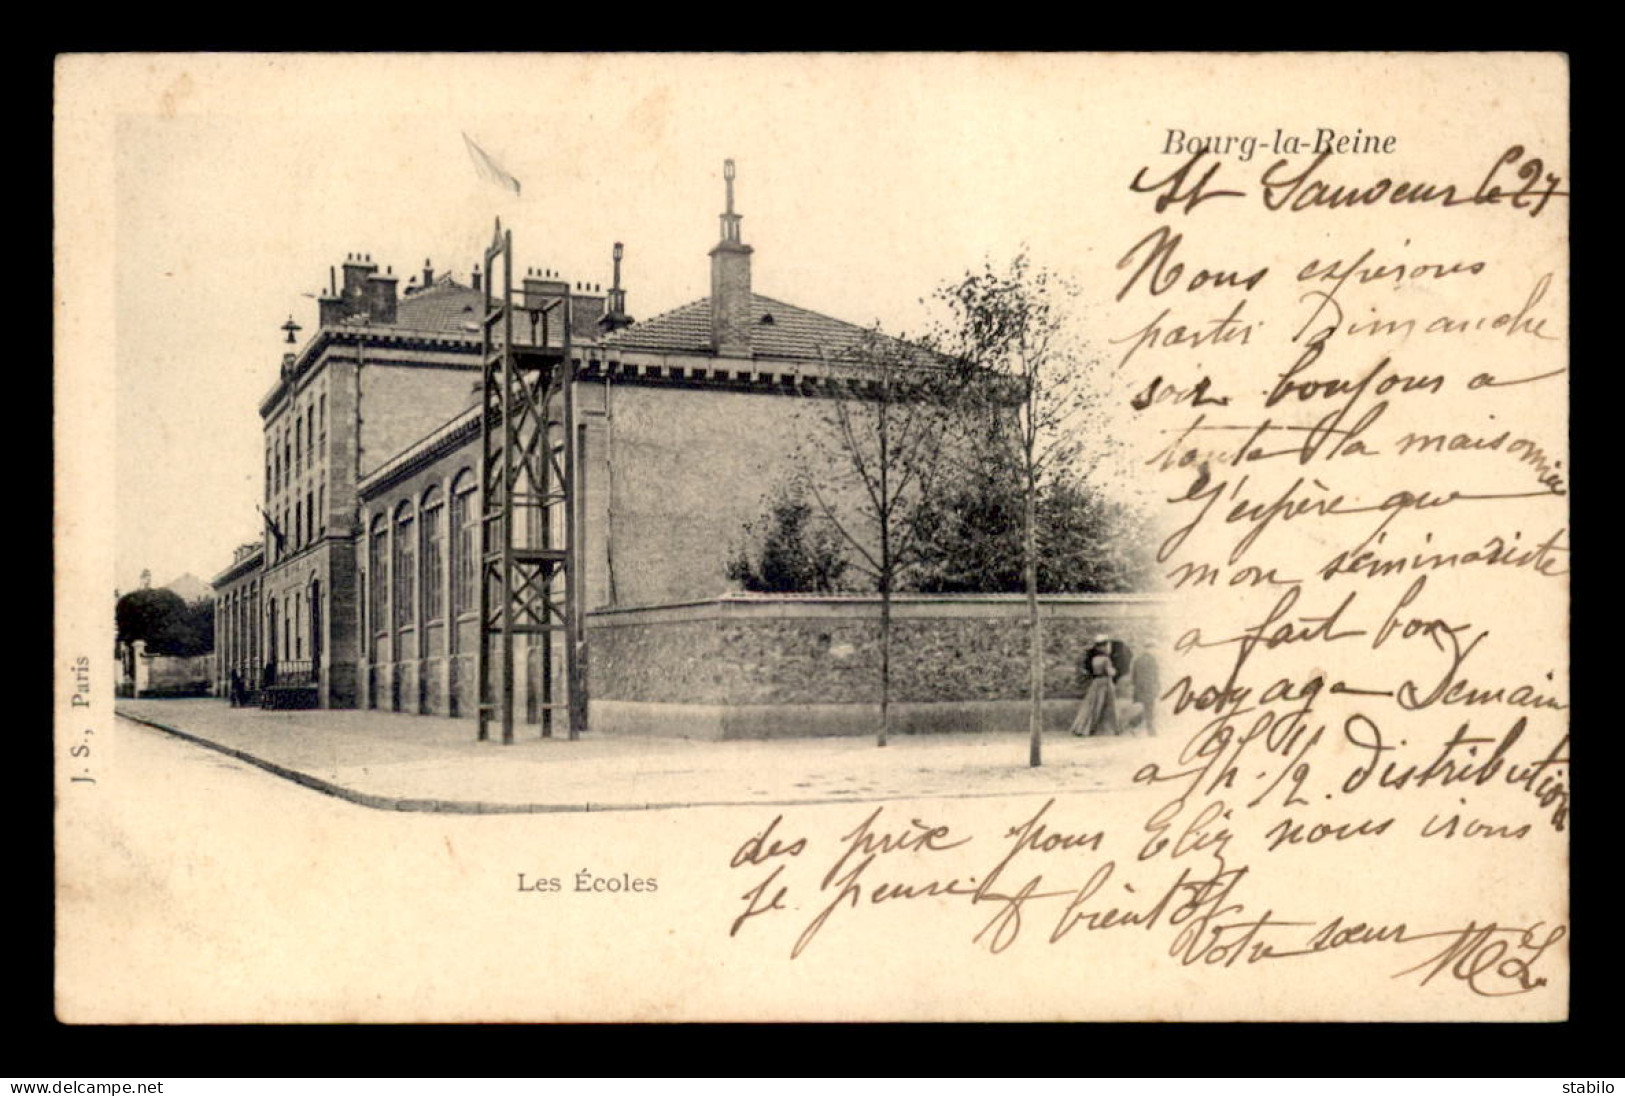 Bourg-la-Reine
St Sauveur le 27
Nous espérons
partir Dimanche
soir bonjour a
toute la maisonnée
J'espère que
mon séminariste
a fait bon
voyage Demain
a 9h. 1/2 distribution
des prix pour Eliz nous irons
je pense. A bientôt
Votre sœur ML
J. S., Paris
Les Écoles
www.delcampe.net
stabilo